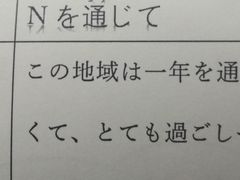 Nを通じて
この地域は一年を通
くて、とても過ごし